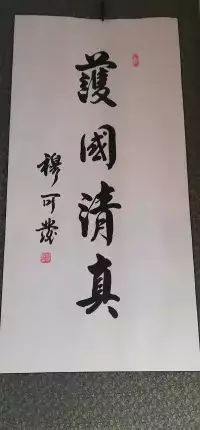 護國清真
穆可發